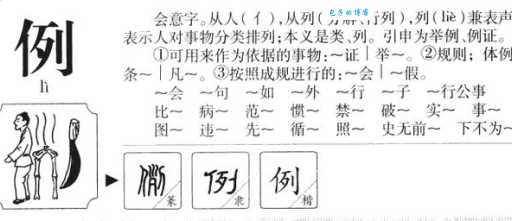 包子的博客
例
lì
会意字。从人(亻),从列(分解、行列),列(liè)兼表声
表示人对事物分类排列;本义是类、列。引申为举例、例证。
①可用来作为依据的事物:~证|举~。②规则;体例
条~|凡~。③按照成规进行的:~会|~假。
~会 ~句 ~如 ~外 ~行 ~子 ~行公事
比~ 病~ 范~ 惯~ 禁~ 破~ 实~ 事~
图~ 违~ 先~ 循~ 照~ 史无前~ 下不为~
例 篆
例 隶
例 楷